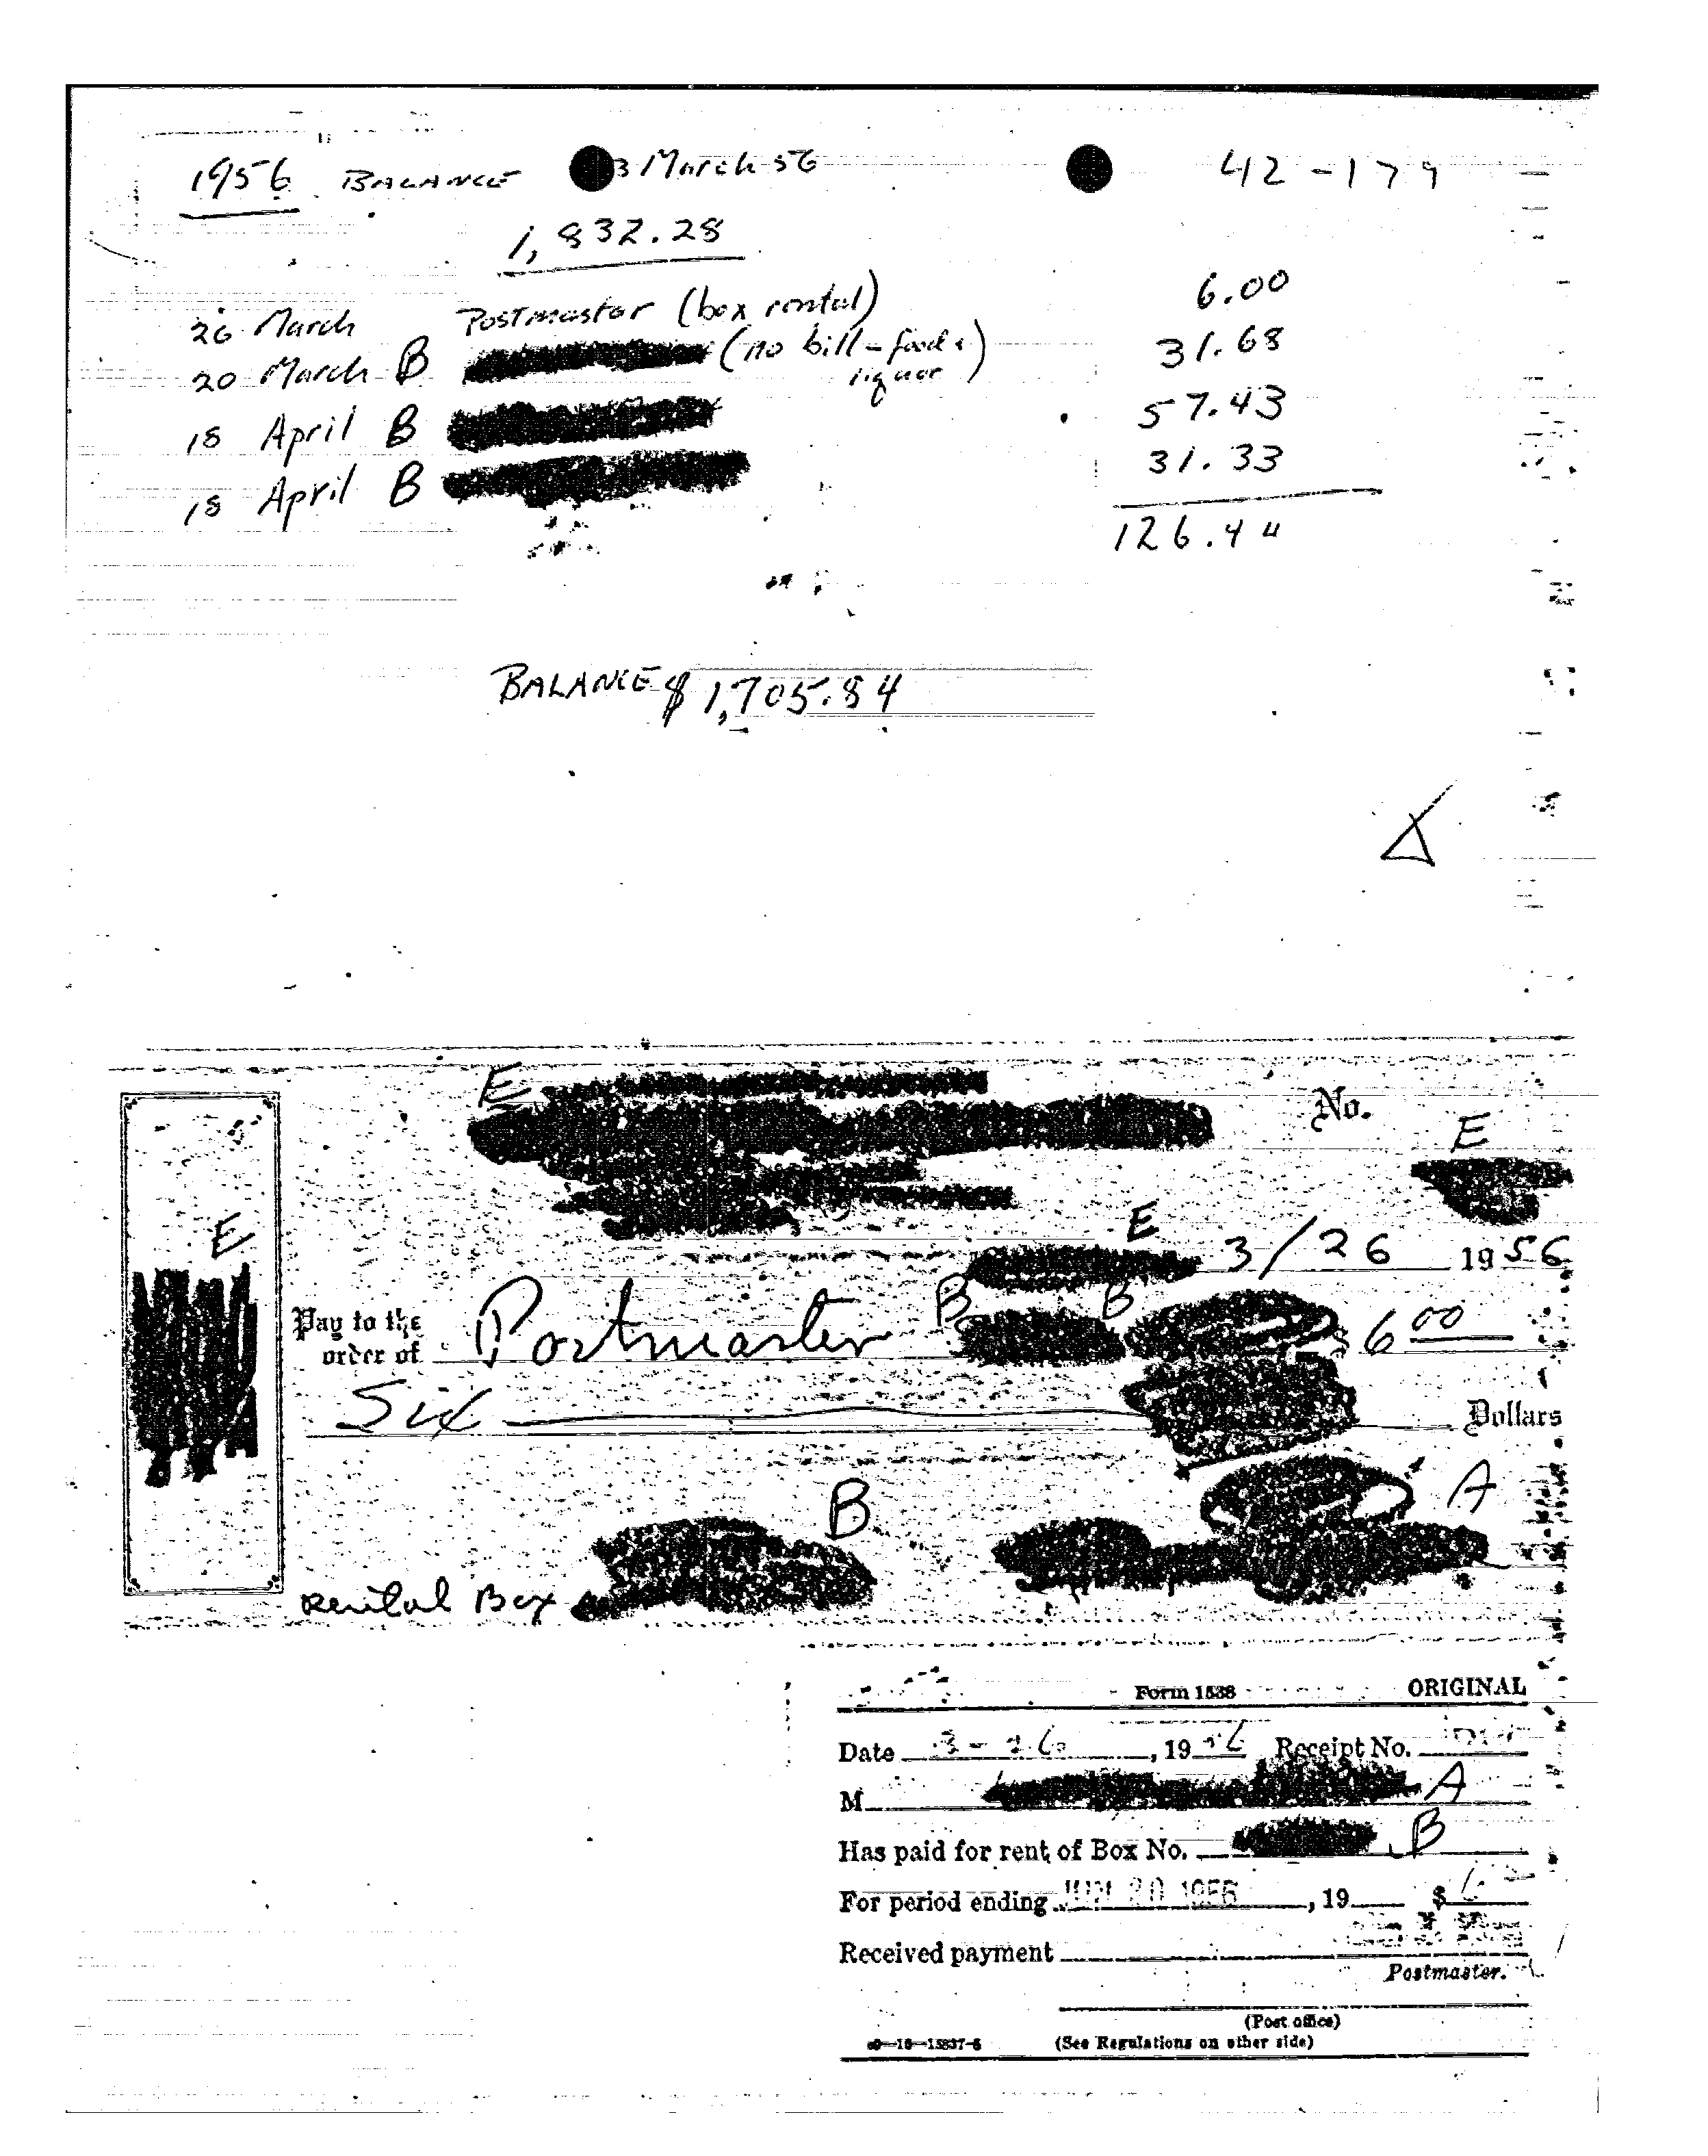 1956 BALANCE 3 March 56 42-179
1,832.28
26 March Postmaster (box rental) 6.00
20 March B (no bill - food & liquor) 31.68
18 April B 57.43
18 April B 31.33
126.44
BALANCE $1,705.84
E
No.
E
E
E 3/26 1956
Pay to the
order of Postmaster B B $ 6 00
Six Dollars
B A
Rental Box
Form 1538 ORIGINAL
Date 3-26, 1956 Receipt No.
M A
Has paid for rent of Box No. B
For period ending JUN 30 1956, 19 $ 6
Received payment
Postmaster.
(Post office)
(See Regulations on other side)